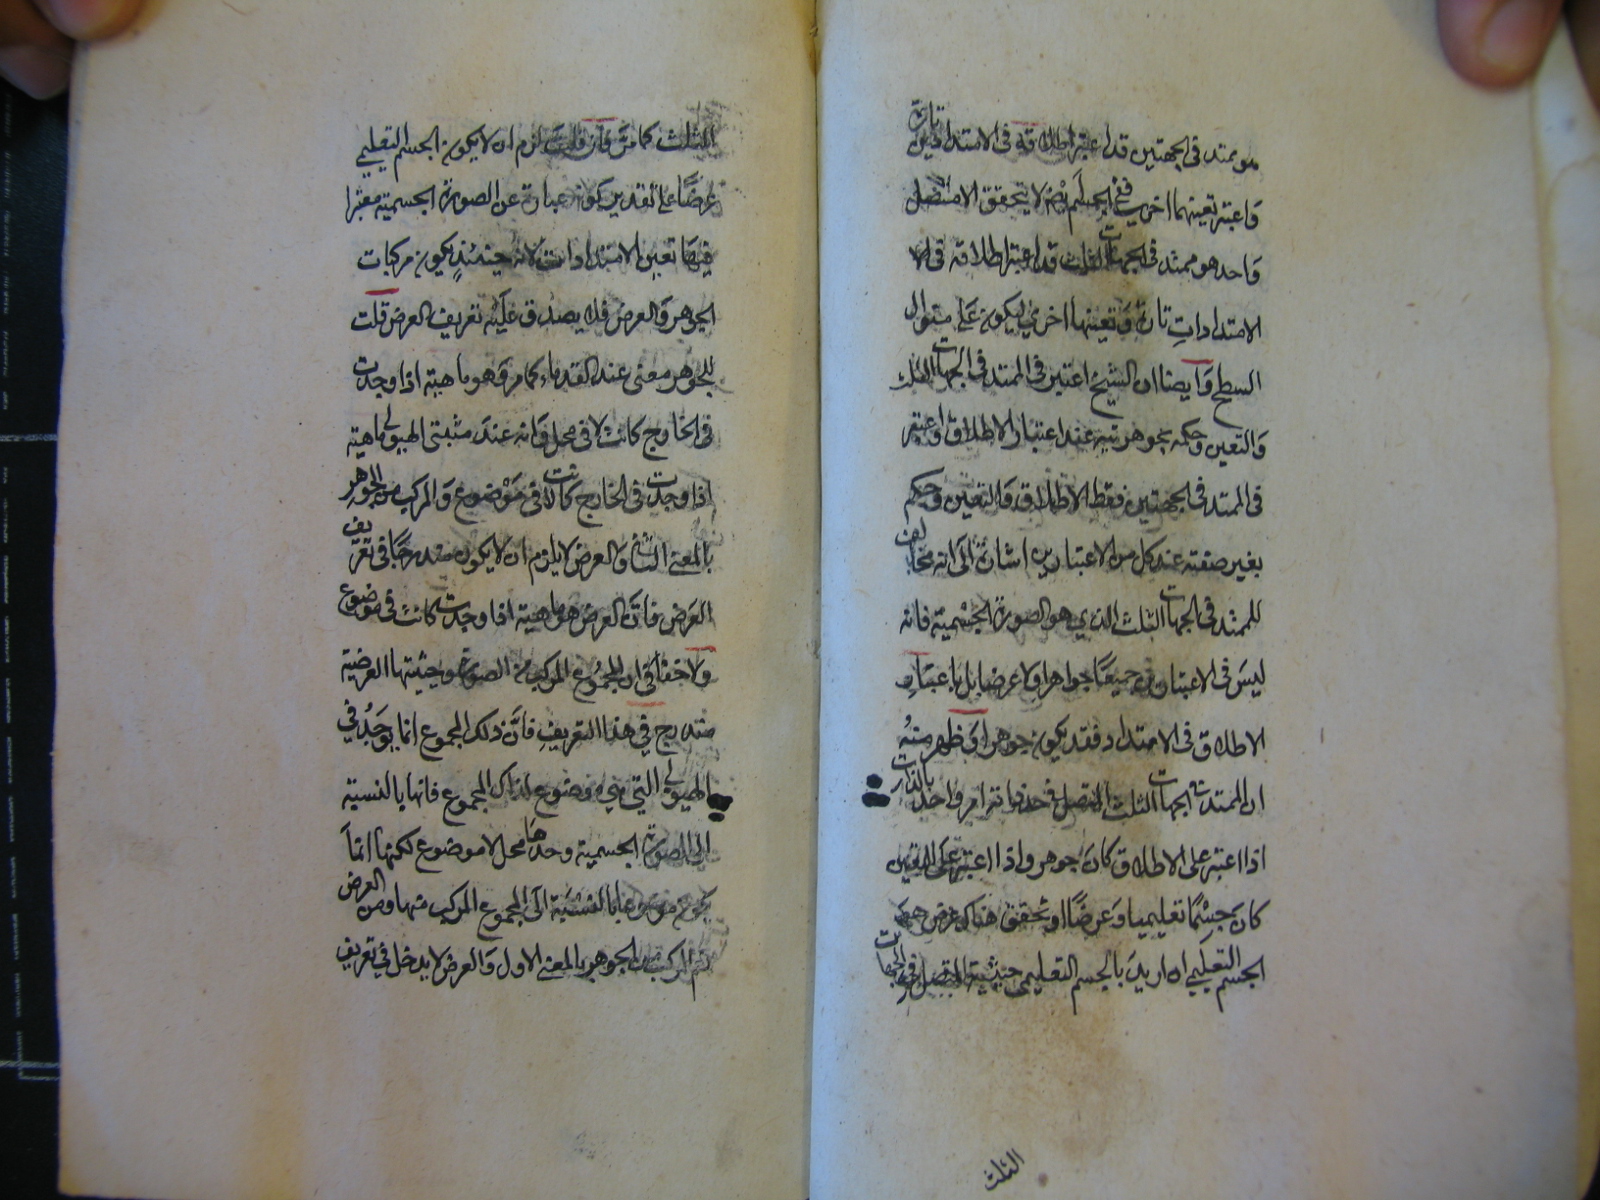 هو ممتد فى الجهتين قد اعتبر اطلاقه فى الامتدادين تارة
واعتبر تعينهما اخرى ففى الجسم ايضا لا يتحقق الا متصل
واحد هو ممتد فى الجهات الثلث قد اعتبر اطلاقه فى الا
الامتدادات تارة وتعينها اخرى ليكون على منوال
السطح وايضا ان الشيخ اعتبر فى الممتد فى الجهات الثلث
والتعين وحكم بجوهريته عند اعتبار الاطلاق واعتبر
فى الممتد فى الجهتين فقط الاطلاق والتعين وحكم
بغير صفته عند كل من الاعتبارين اشارة الى انه مخالف
للممتد فى الجهات الثلث الذي هو الصورة الجسمية فانه
ليس فى الاعتبارين جميعا جواهرا ولا عرضا بل باعتبار
الاطلاق فى الامتداد فقد يكون جوهرا فظهر منه
ان الممتد فى الجهات الثلث المتصل فى حد ذاته امر واحد بالذات
اذا اعتبر على الاطلاق كان جوهر واذا اعتبر على التعين
كان جسما تعليميا وعرضا او تحقق هناك عرض هو
الجسم التعليمي ان اريد بالجسم التعليمي حيثية المتصل فى الجهات
الثلث
الثلث كما مر فان قلت لزم ان لا يكون الجسم التعليمي
عرضا على تقدير كونه عبارة عن الصورة الجسمية معتبرا
فيها تعين الامتدادات لانه حينئذ يكون مركبات
الجوهر والعرض فلا يصدق عليه تعريف العرض قلت
للجوهر معنى عند القدماء كما مر وهو ماهية اذا وجدت
فى الخارج كانت لا فى محل وانه عند مثبتى الهيولى ماهية
اذا وجدت فى الخارج كانت لا فى موضوع والمركب من الجوهر
بالمعنى الثانى والعرض لا يلزم ان لا يكون مندرجا فى تعريف
العرض فان العرض هو ماهية اذا وجدت كانت فى موضوع
ولا خفا فى ان المجموع المركب من الصورة وحيثيتها العرضية
مندرج فى هذا التعريف فان ذلك المجموع انما يوجد فى
الهيولى التى هى موضوع لذلك المجموع فانها بالنسبة
الى الصورة الجسمية وحدها محل لا موضوع لكنها انما
موضوعا بالنسبة الى المجموع المركب منها ومن العرض
نعم المركب من الجوهر بالمعنى الاول والعرض لا يدخل فى تعريف